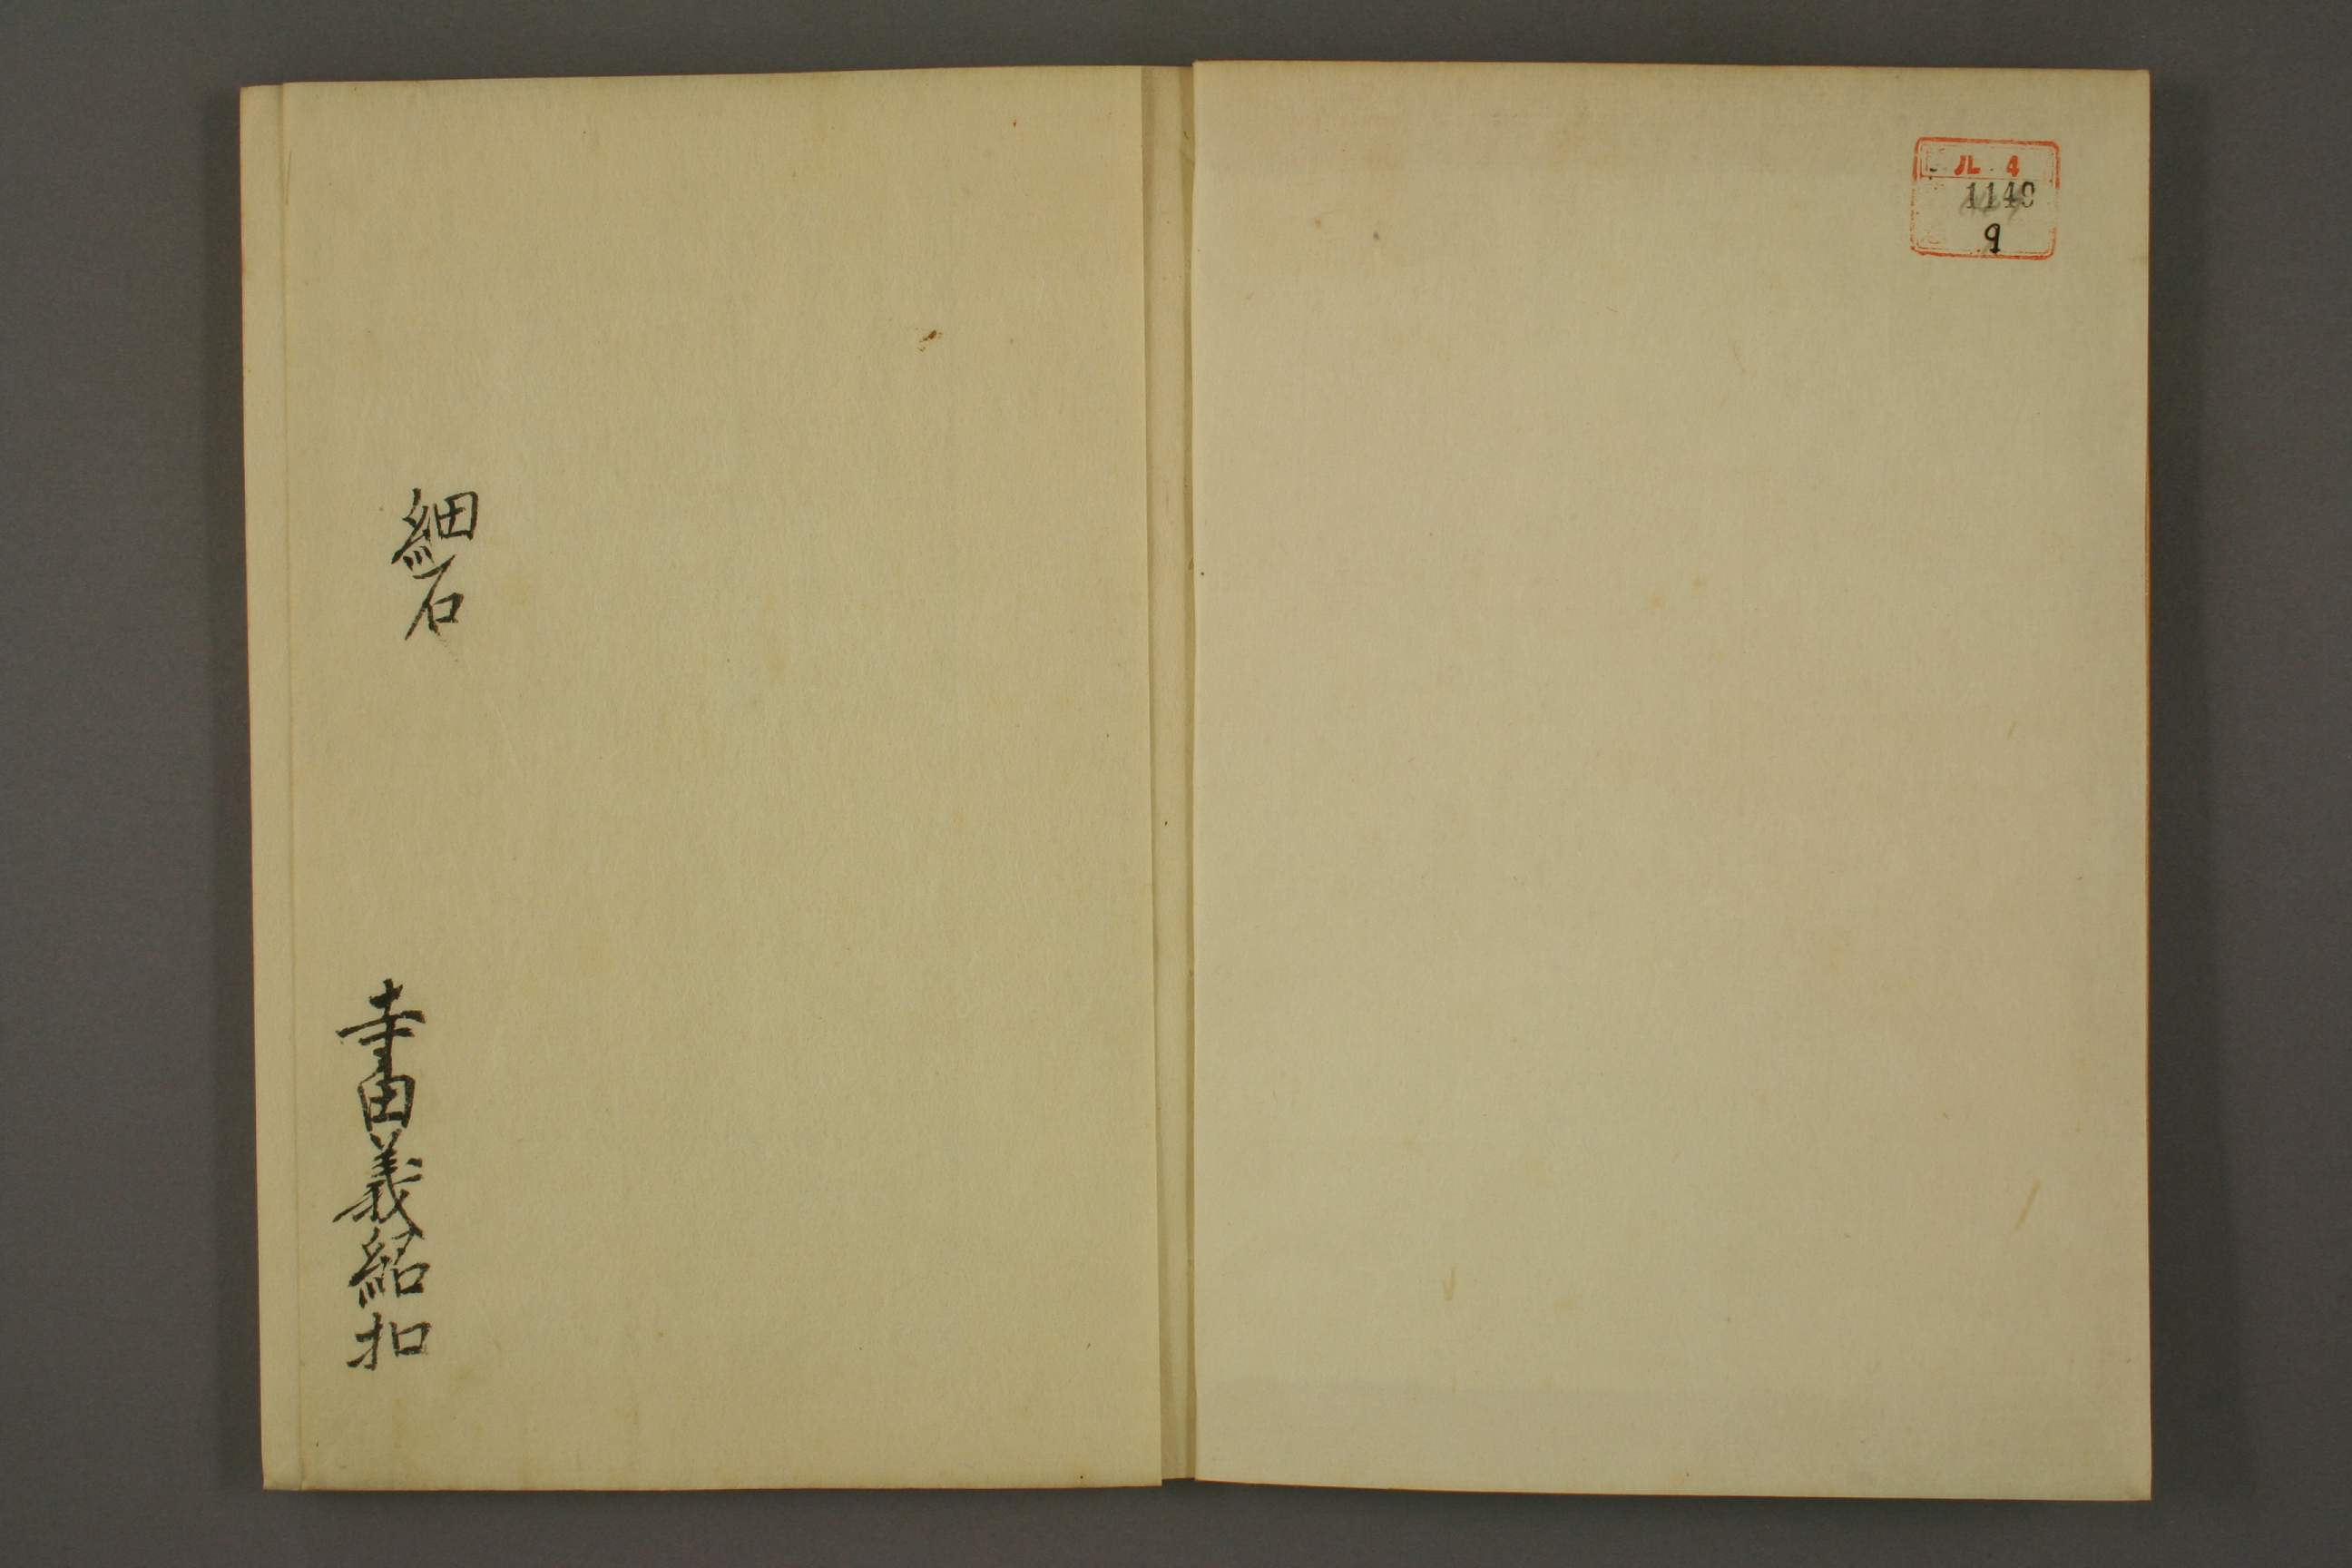 ル 4
1149
9
細石
寺田義紹扣